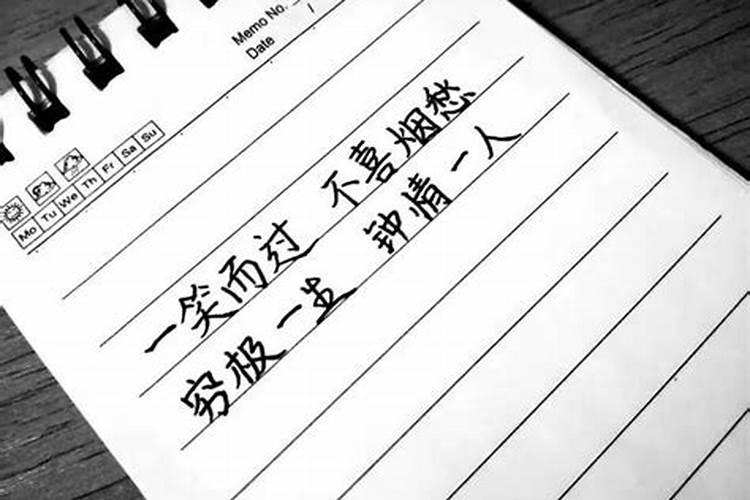 Memo No.
Date /
Mo Tu We Th Fr Sa Su
一笑而过 不喜烟愁
穷极一生 钟情一人